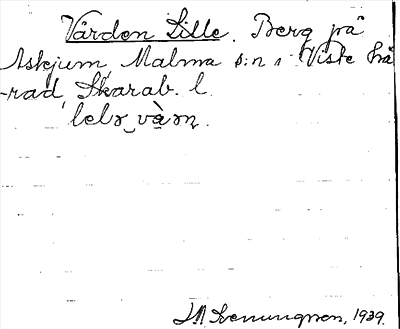 Vården Lille. Berg på
Askjum, Malma s:n i Viste hä
-rad, Skarab. l.
lelə vàən.
J M Svenungsson, 1939.